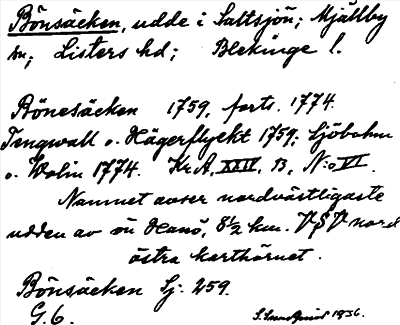 Bönsäcken, udde i Saltsjön; Mjällby
sn; Listers hd; Blekinge l.
Bönesäcken 1759, forts. 1774.
Tengwall o. Hägerflyckt 1759; Sjöbohm
o. Wolin 1774. Kr.A. XXIV, B, N:o VI.
Namnet avser nordvästligaste
udden av ön Hanö, 8½ km. VSV nord
östra karthörnet.
Bönsäcken Sj. 259.
G.6. 1936.